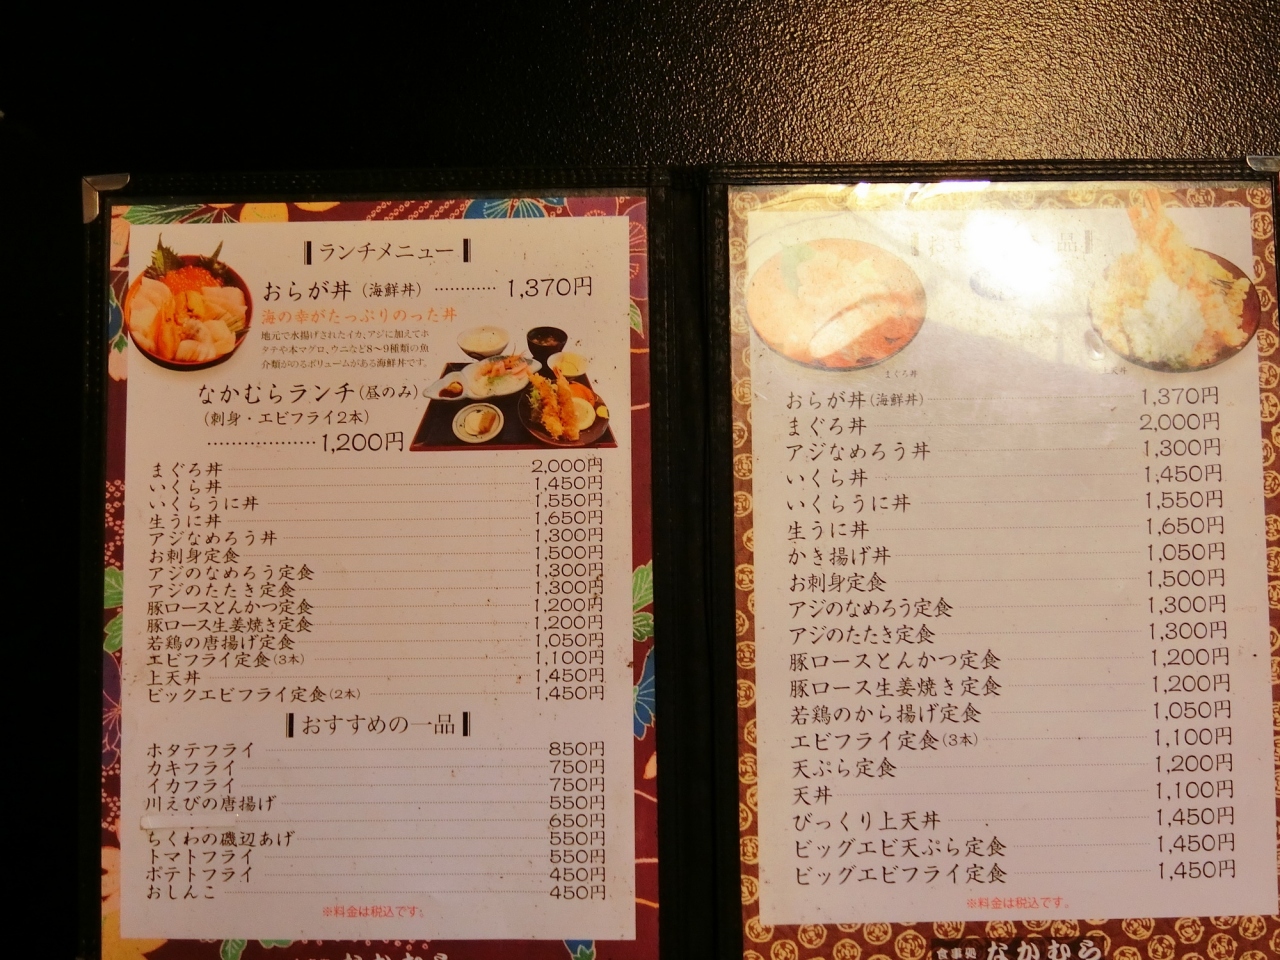 ランチメニュー
おらが丼(海鮮丼)…………1,370円
海の幸がたっぷりのった丼
地元で水揚げされたイカ、アジに加えてホ
タテや本マグロ、ウニなど8〜9種類の魚
介類がのるボリュームがある海鮮丼です。
なかむらランチ(昼のみ)
(刺身・エビフライ2本)
…………………1,200円
まぐろ丼 2,000円
いくら丼 1,450円
いくらうに丼 1,550円
生うに丼 1,650円
アジなめろう丼 1,300円
お刺身定食 1,500円
アジのなめろう定食 1,300円
アジのたたき定食 1,300円
豚ロースとんかつ定食 1,200円
豚ロース生姜焼き定食 1,200円
若鶏の唐揚げ定食 1,050円
エビフライ定食(3本) 1,100円
上天丼 1,450円
ビックエビフライ定食(2本) 1,450円
おすすめの一品
ホタテフライ 850円
カキフライ 750円
イカフライ 750円
川えびの唐揚げ 550円
650円
ちくわの磯辺あげ 550円
トマトフライ 550円
ポテトフライ 450円
おしんこ 450円
※料金は税込です。
品
まぐろ丼
上天丼
おらが丼(海鮮丼) 1,370円
まぐろ丼 2,000円
アジなめろう丼 1,300円
いくら丼 1,450円
いくらうに丼 1,550円
生うに丼 1,650円
かき揚げ丼 1,050円
お刺身定食 1,500円
アジのなめろう定食 1,300円
アジのたたき定食 1,300円
豚ロースとんかつ定食 1,200円
豚ロース生姜焼き定食 1,200円
若鶏のから揚げ定食 1,050円
エビフライ定食(3本) 1,100円
天ぷら定食 1,200円
天丼 1,100円
びっくり上天丼 1,450円
ビッグエビ天ぷら定食 1,450円
ビッグエビフライ定食 1,450円
※料金は税込です。
食事処 なかむら